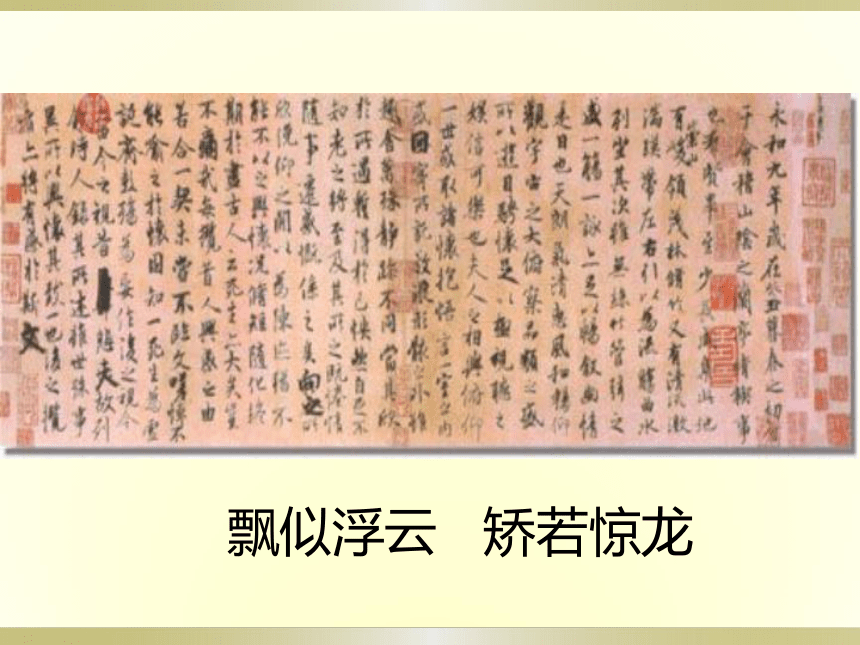 永和九年歲在癸丑暮春之初會
于會稽山陰之蘭亭脩稧事
也羣賢畢至少長咸集此地
有崇山峻領茂林脩竹又有清流激
湍暎帶左右引以為流觴曲水
列坐其次雖無絲竹管弦之
盛一觴一詠亦足以暢敘幽情
是日也天朗氣清惠風和暢仰
觀宇宙之大俯察品類之盛
所以遊目騁懷足以極視聽之
娛信可樂也夫人之相與俯仰
一世或取諸懷抱悟言一室之內
或因寄所託放浪形骸之外雖
趣舍萬殊靜躁不同當其欣
於所遇蹔得於己怏然自足不
知老之將至及其所之既惓情
隨事遷感慨係之矣向之所
欣俛仰之間以為陳迹猶不
能不以之興懷況脩短隨化終
期於盡古人云死生亦大矣豈
不痛哉每攬昔人興感之由
若合一契未嘗不臨文嗟悼不
能喻之於懷固知一死生為虛
誕齊彭殤為妄作後之視今
亦由今之視昔悲夫故列
敘時人錄其所述雖世殊事
異所以興懷其致一也後之攬
者亦將有感於斯文
飘似浮云 矫若惊龙